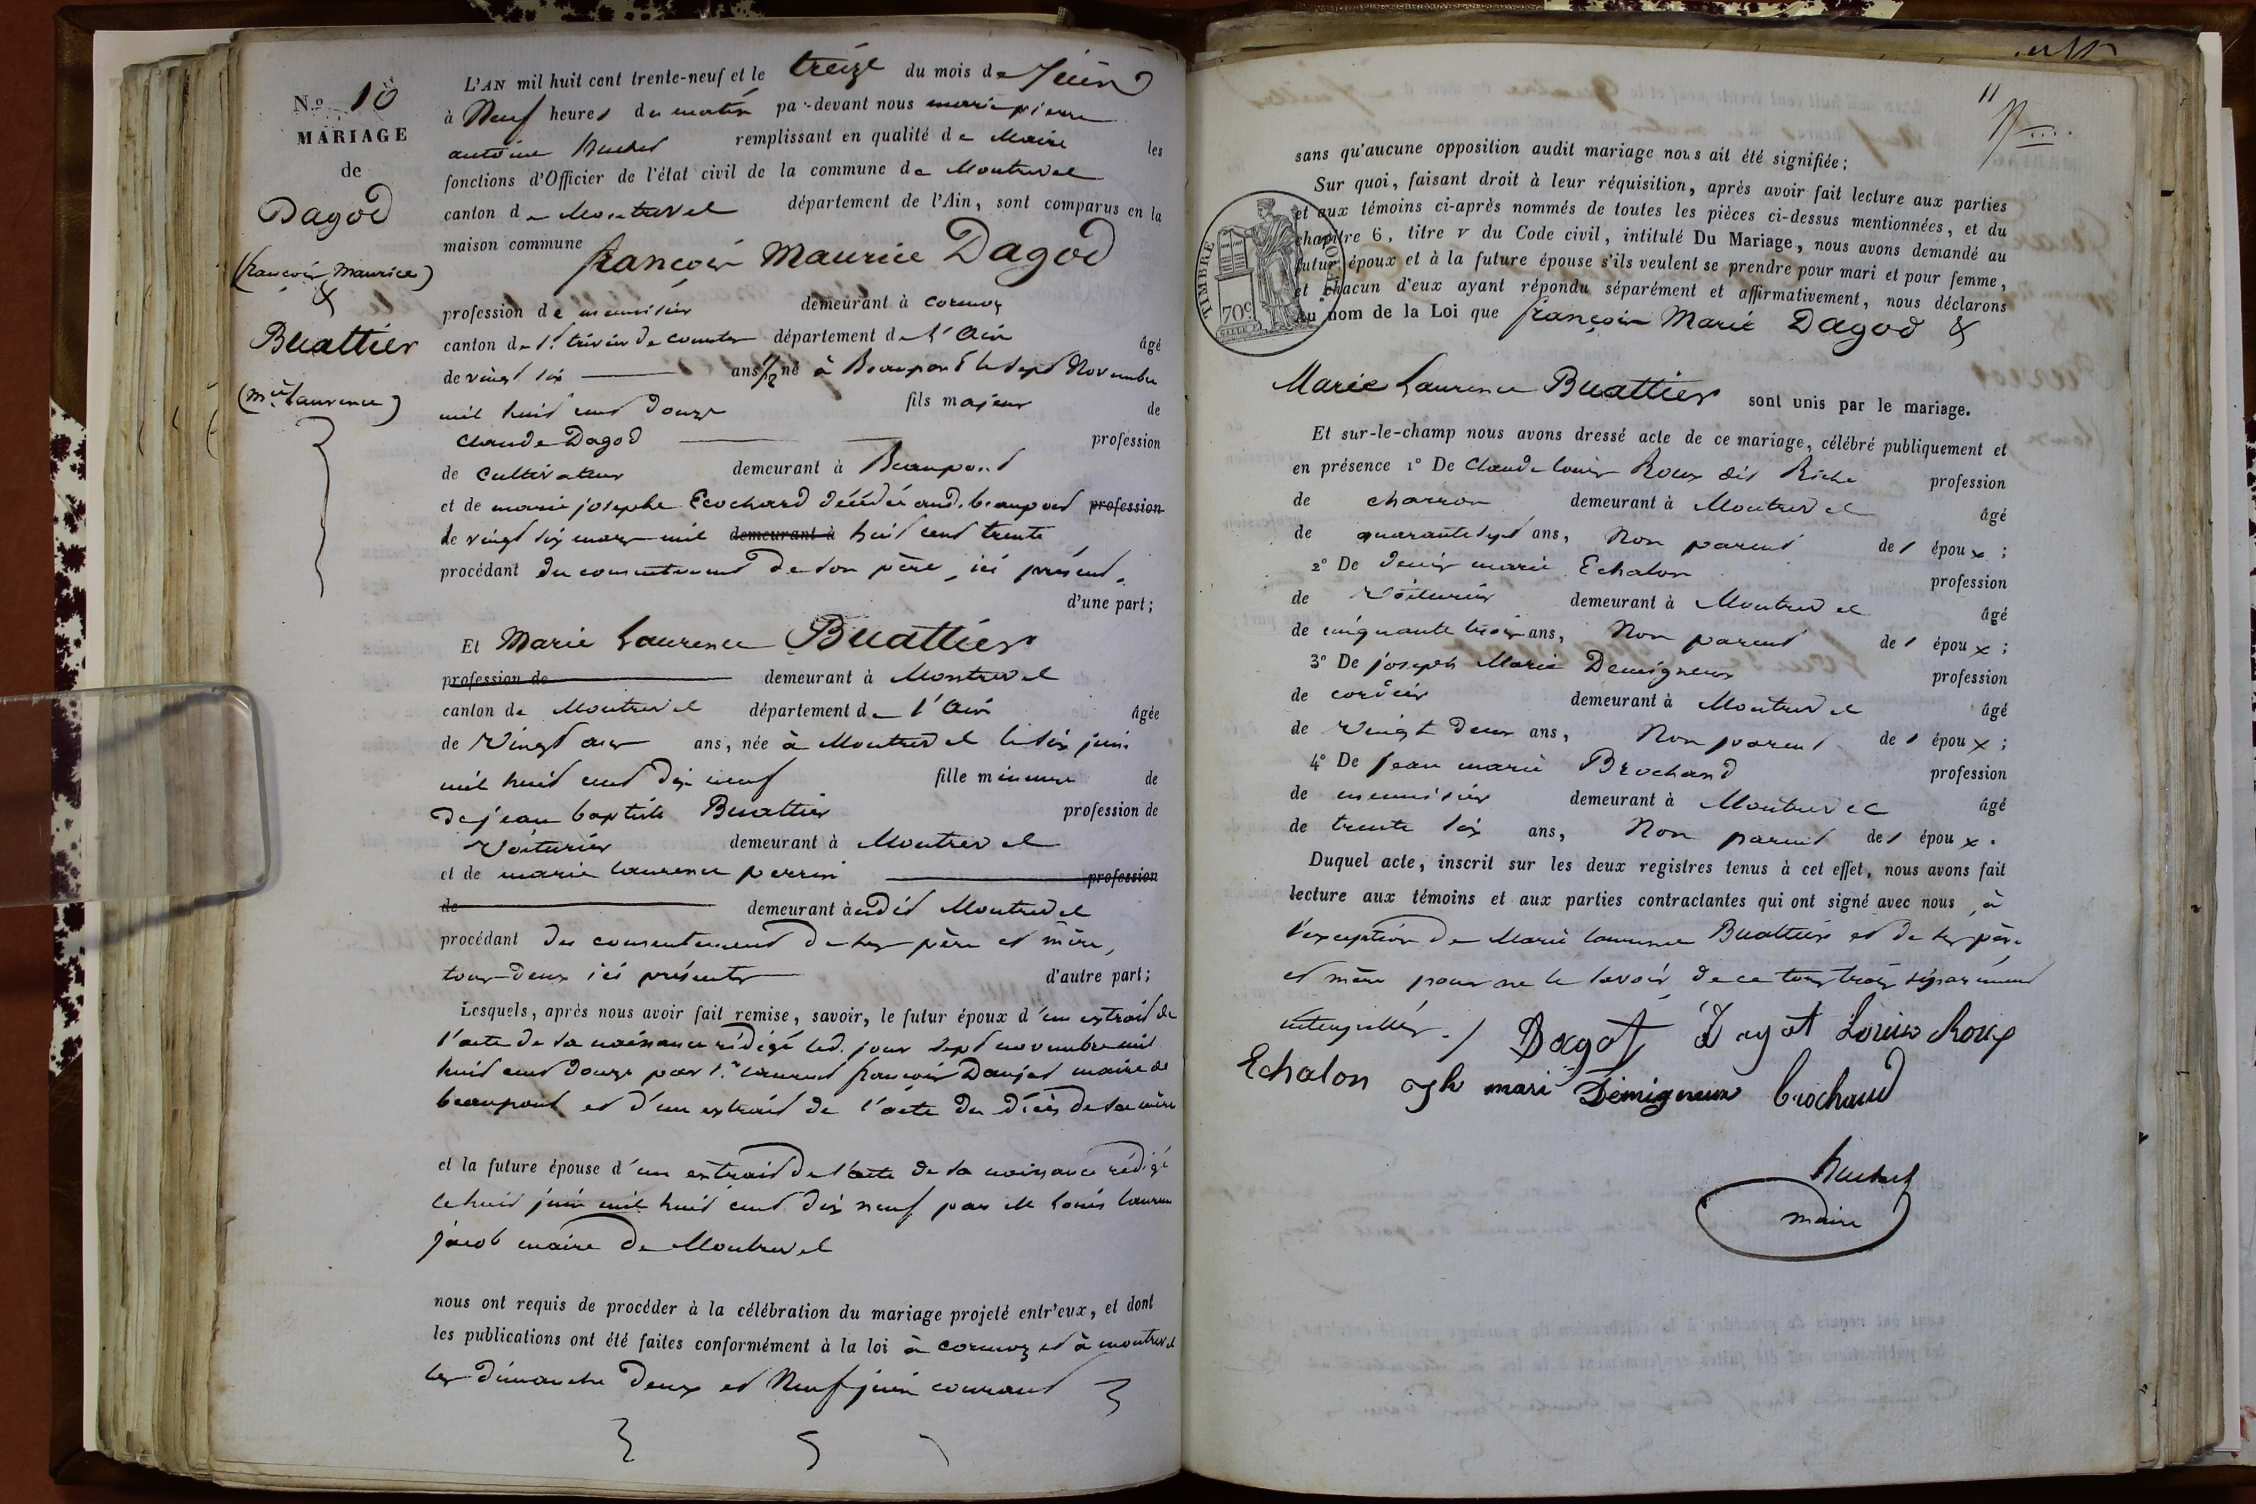 N.o 10
MARIAGE
de
Dagod
(françois Maurice)
&
Buattier
(mie Laurence)
L'AN mil huit cent trente-neuf et le treize du mois de Juin
à Neuf heures du matin pa-devant nous marie pierre
antoine remplissant en qualité de Maire les
fonctions d'Officier de l'état civil de la commune de Montrevel
canton de Montrevel département de l'Ain, sont comparus en la
maison commune françois Maurice Dagod
profession de menuisier demeurant à cormoz
canton de St. trivier de courtes département de l'Ain âgé
de vingt six ans 1/2 né à Beaupont le sept Novembre
mil huit cent douze fils majeur de
Claude Dagod profession
de cultivateur demeurant à Beaupont
et de marie josephe Ecochard décédée aud. beaupont profession
le vingt six mars mil demeurant à huit cent trente
procédant du consentement de son père, ici présent.
d'une part;
Et Marie Laurence Buattier
profession de demeurant à Montrevel
canton de Montrevel département de l'Ain âgée
de vingt ans, née à Montrevel le six juin
mil huit cent dix neuf fille mineure de
de jean baptiste Buattier profession de
Voiturier demeurant à Montrevel
et de marie laurence perrin profession
de demeurant à udit Montrevel
procédant du consentement de ses père et mère,
tous deux ici présents d'autre part;
Lesquels, après nous avoir fait remise, savoir, le futur époux d'un extrait de
l'acte de sa naissance rédigé led. jour sept novembre mil
huit cent douze par Sr. laurent françois Danjod maire de
beaupont et d'un extrait de l'acte du décès de sa mère
et la future épouse d'un extrait de l'acte de sa naissance rédigé
le huit juin mil huit cent dix neuf par M Louis laurent
jacob maire de Montrevel
nous ont requis de procéder à la célébration du mariage projeté entr'eux, et dont
les publications ont été faites conformément à la loi à cormoz et à montrevel
les dimanche deux et Neuf juin courant
11
sans qu'aucune opposition audit mariage nous ait été signifiée;
Sur quoi, faisant droit à leur réquisition, après avoir fait lecture aux parties
et aux témoins ci-après nommés de toutes les pièces ci-dessus mentionnées, et du
chapitre 6, titre v du Code civil, intitulé Du Mariage, nous avons demandé au
futur époux et à la future épouse s'ils veulent se prendre pour mari et pour femme,
et chacun d'eux ayant répondu séparément et affirmativement, nous déclarons
Au nom de la Loi que françois Marie Dagod &
Marie Laurence Buattier sont unis par le mariage.
TIMBRE ROYAL
70c.
SEINE
Et sur-le-champ nous avons dressé acte de ce mariage, célébré publiquement et
en présence 1° De Claude louis Roux dit Riche profession
de charron demeurant à Montrevel âgé
de quarante sept ans, Non parent des époux;
2° De denis marie Echalon profession
de Voiturier demeurant à Montrevel âgé
de cinquante trois ans, Non parent des époux;
3° De joseph Marie Demigneux profession
de cordier demeurant à Montrevel âgé
de Vingt deux ans, Non parent des époux;
4° De Jean marie Brochand profession
de menuisier demeurant à Montrevel âgé
de trente six ans, Non parent des époux.
Duquel acte, inscrit sur les deux registres tenus à cet effet, nous avons fait
lecture aux témoins et aux parties contractantes qui ont signé avec nous, à
l'exception de Marie laurence Buattier et de ses père
et mère pour ne le savoir de ce tous trois séparément
interpellés. / Dagot Dagot Louis Roux
Echalon jph mari Demigneux brochand
maire